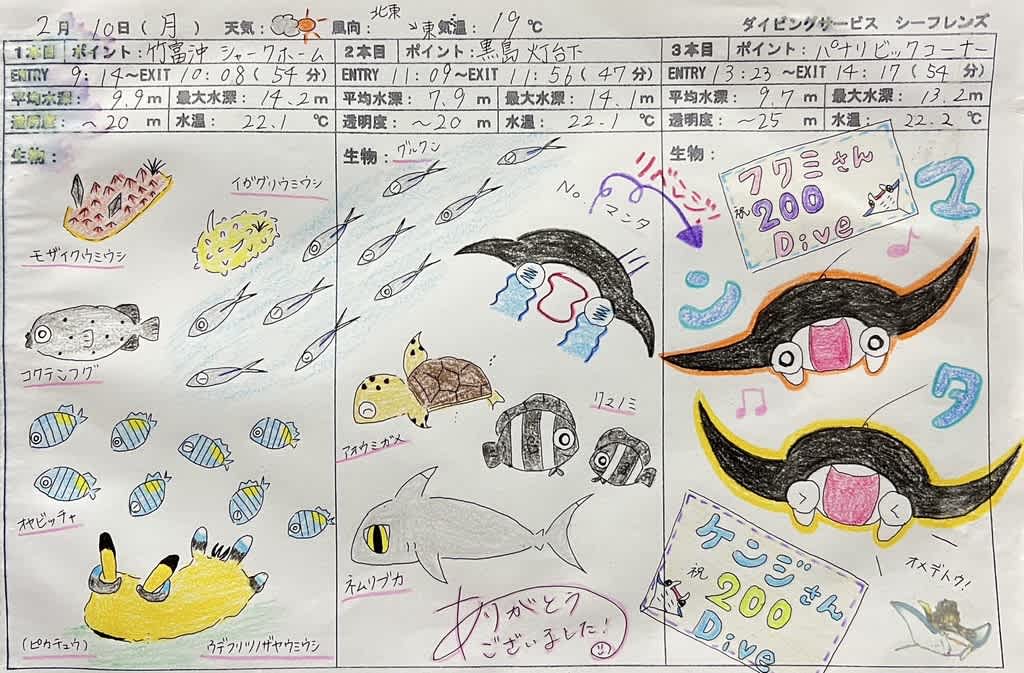 2月 10日(月) 天気: 風向: 北東→東 気温: 19℃ ダイビングサービス シーフレンズ
1本目 ポイント: 竹富沖 シャークホーム
ENTRY 9:14~EXIT 10:08(54分)
平均水深: 9.9m 最大水深: 14.2m
透明度: ~20m 水温: 22.1℃
生物:
モザイクウミウシ
イガグリウミウシ
コクテンフグ
オヤビッチャ
(ピカチュウ)
ウデフリツノザヤウミウシ
2本目 ポイント: 黒島 灯台下
ENTRY 11:09~EXIT 11:56(47分)
平均水深: 7.9m 最大水深: 14.1m
透明度: ~20m 水温: 22.1℃
生物:
グルクン
No
マンタ
リベンジ
アオウミガメ
クマノミ
ネムリブカ
ありがとう
ございました!
3本目 ポイント: パナリビックコーナー
ENTRY 13:23~EXIT 14:17(54分)
平均水深: 9.7m 最大水深: 13.2m
透明度: ~25m 水温: 22.2℃
生物:
フクミさん
祝 200
Dive
マ
ン
タ
ケンジさん
祝 200
Dive
オメデトウ!